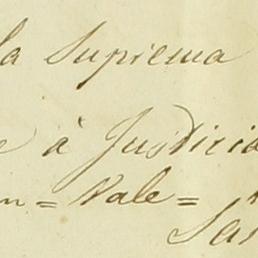 la Suprema
e à Justicia
n = Vale =